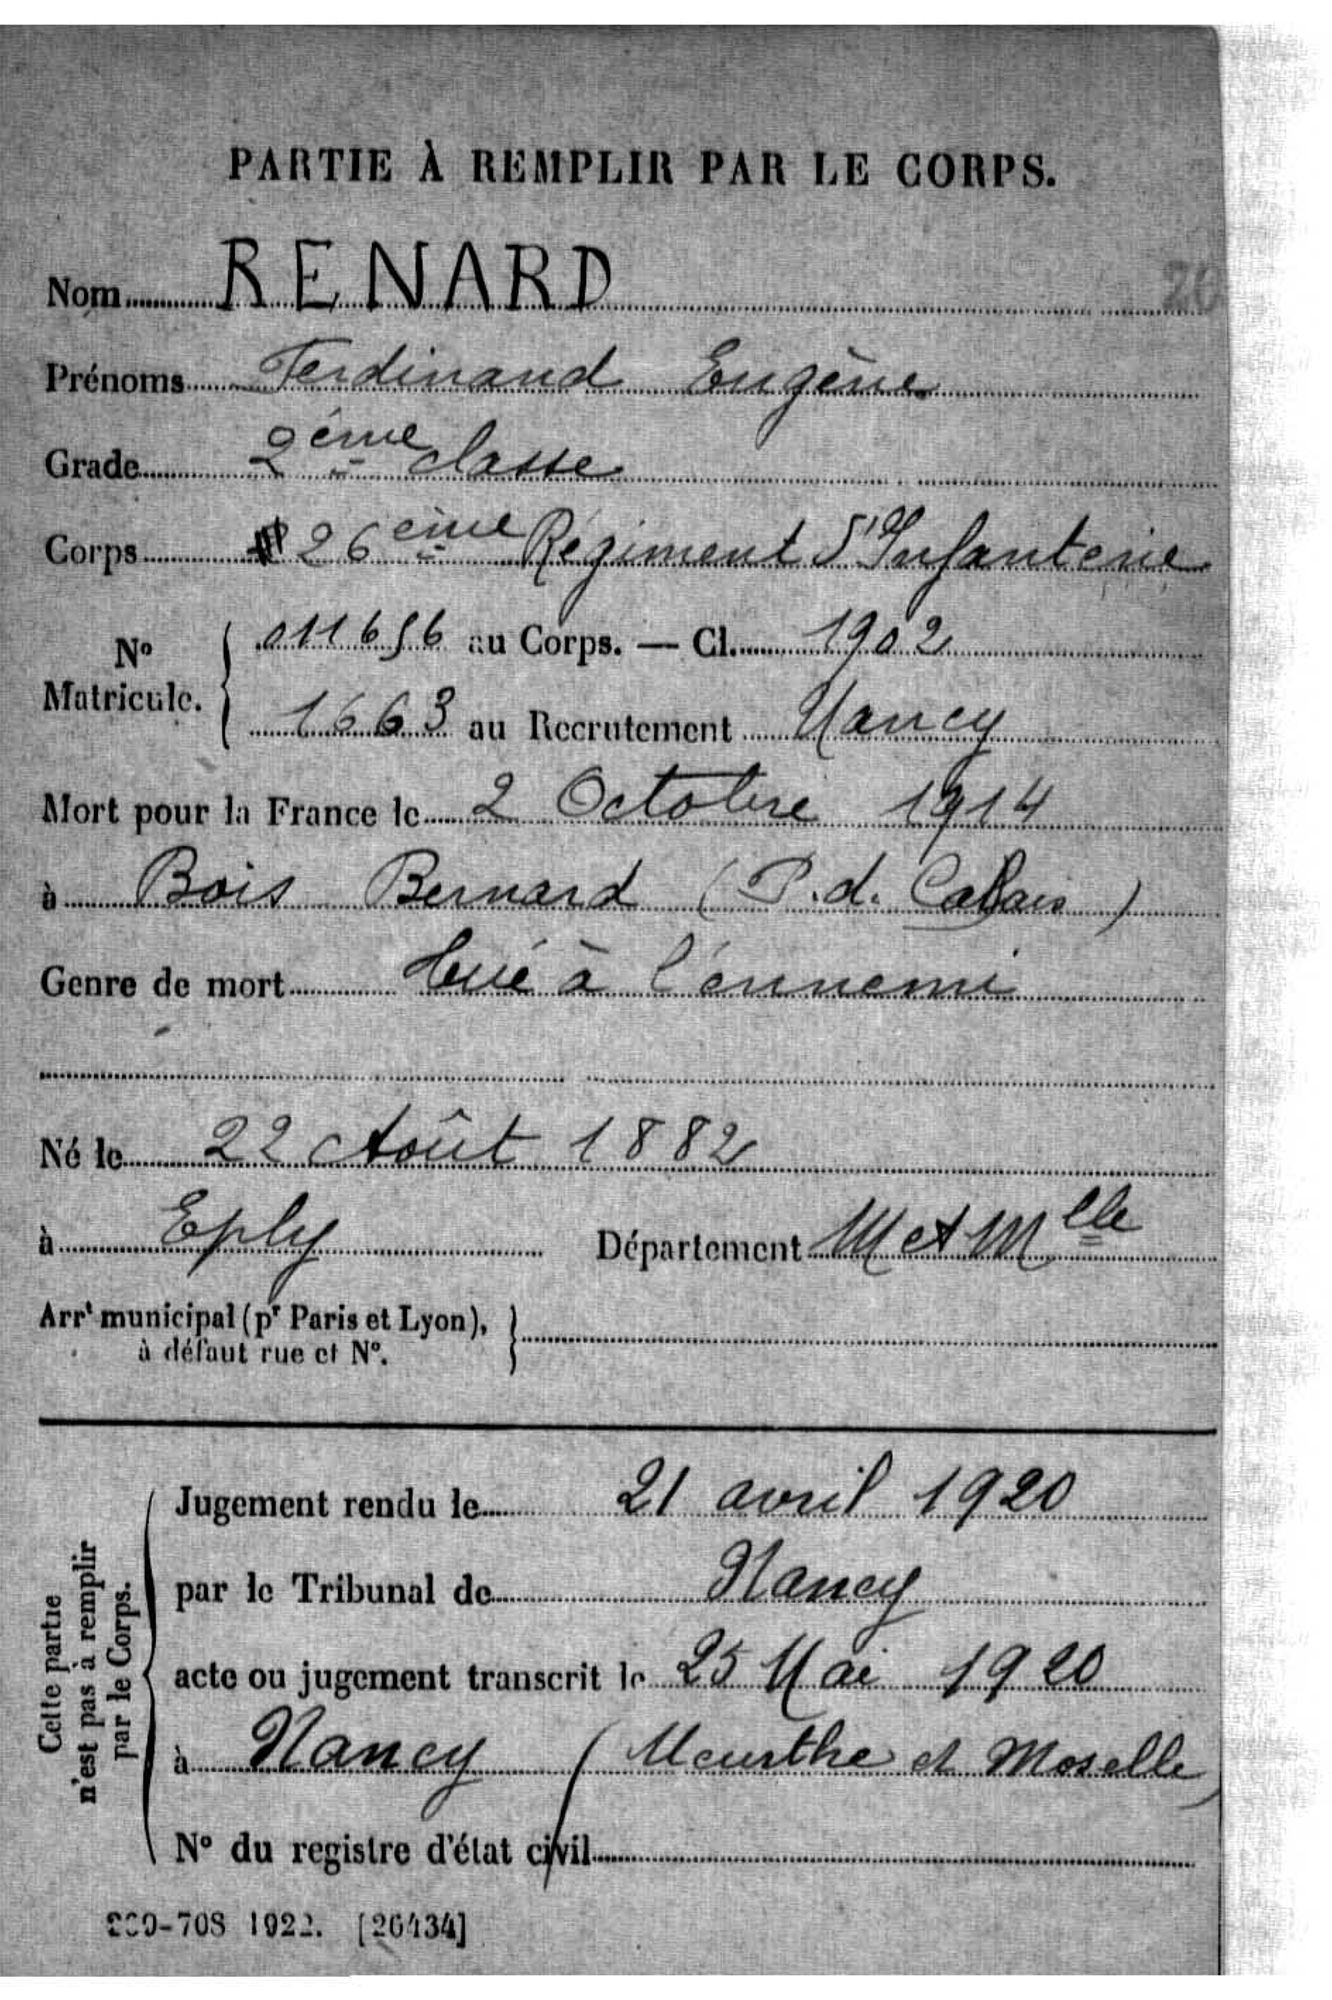 PARTIE À REMPLIR PAR LE CORPS.
Nom RENARD 26
Prénoms Ferdinand Eugène
Grade 2ème classe
Corps 26ème Régiment d'Infanterie
No Matricule. { 011656 au Corps. — Cl. 1902
1663 au Recrutement Nancy
Mort pour la France le 2 Octobre 1914
à Bois Bernard (P.d. Calais)
Genre de mort tué à l'ennemi
Né le 22 Août 1882
à Eply Département M et Mlle
Arrt municipal (pr Paris et Lyon), }
à défaut rue et No.
Cette partie
n'est pas à remplir
par le Corps.
Jugement rendu le 21 avril 1920
par le Tribunal de Nancy
acte ou jugement transcrit le 25 Mai 1920
à Nancy (Meurthe et Moselle)
No du registre d'état civil
-708 1922. [26434]